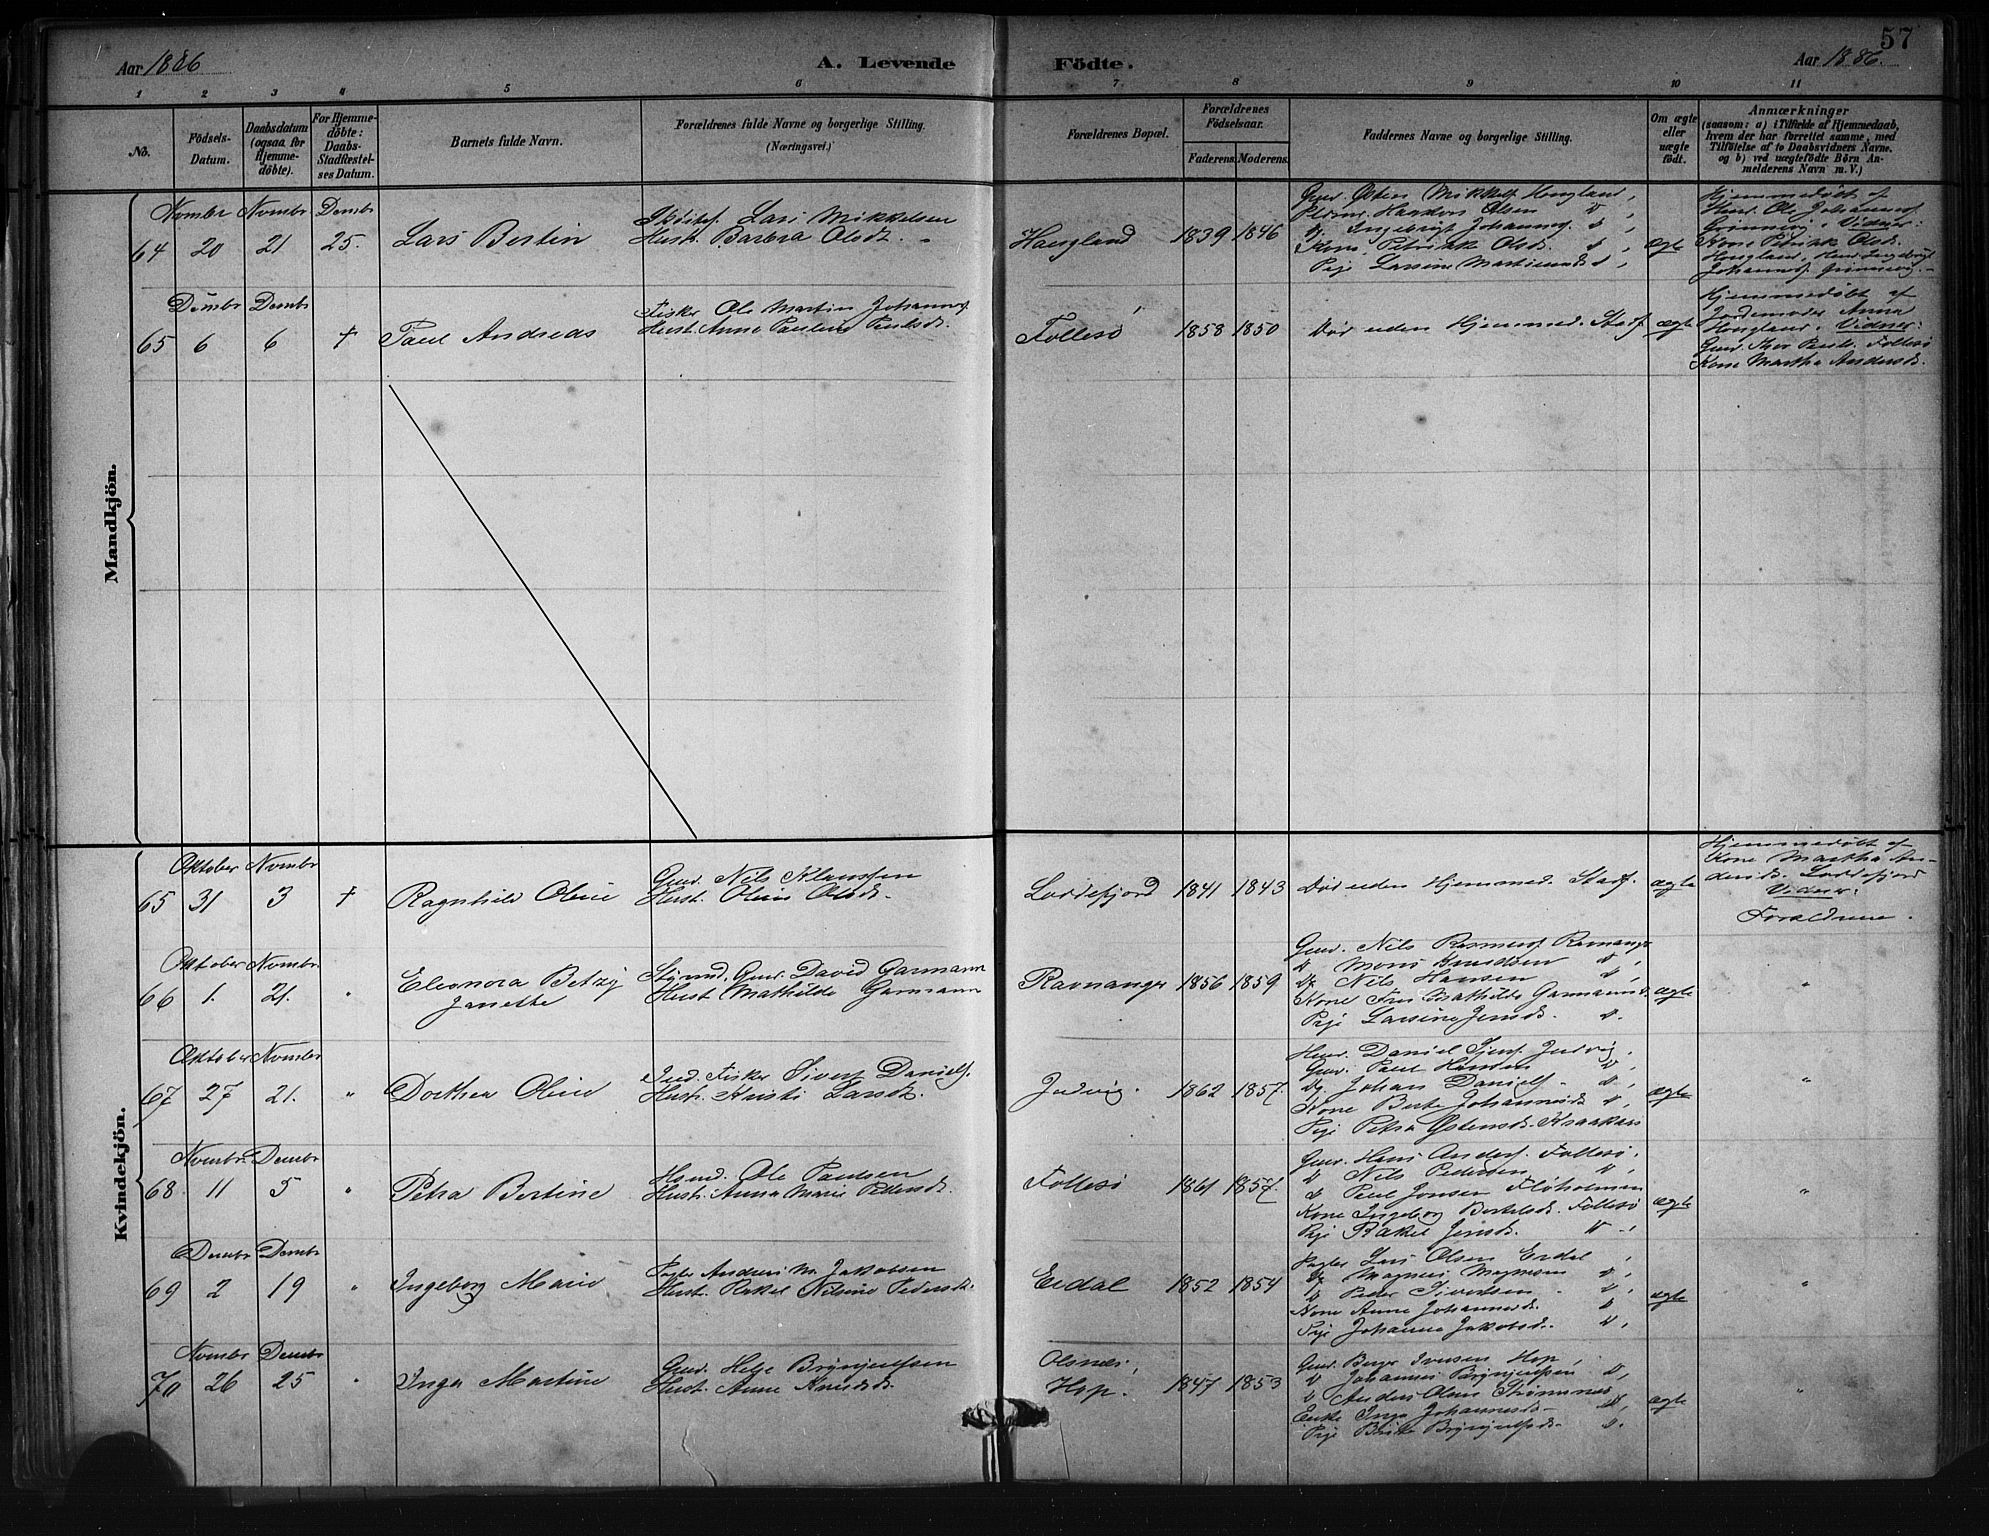 57
Aar 1886
A. Levende
Födte.
Aar 1886.
1 2 3 4 5 6 7 8 9 10 11
No.
Födsels-Datum.
Daabsdatum (ogsaa for Hjemme-döbte).
For Hjemme-döbte: Daabs-Stadfæstel-ses Datum.
Barnets fulde Navn.
Forældrenes fulde Navne og borgerlige Stilling.
(Næringsvei.)
Forældrenes Bopæl.
Forældrenes Födselsaar.
Faderens. Moderens.
Faddernes Navne og borgerlige Stilling.
Om ægte eller uægte födt.
Anmærkninger
(saasom: a) i Tilfælde af Hjemmedaab,
hvem der har forrettet samme, med
Tilföielse af to Daabsvidners Navne,
og b) ved uægtefödte Börn An-
melderens Navn m. V.)
Mandkjön.
64
Novmbr 20
Novmbr 21
Decmbr 25.
Lars Bertin
Lars Mikkelsen
Hust. Barbra Olsdt.
Haugland
1839 1846
Haakon Olsen
Ingebrigt Johannes.
Kone Petrikke Olsdt.
Pige Larsine
ægte
Hjemmedøbt af
Ole Johannes.
Vidner:
Kone Petrikke Olsdt.
65
Decmbr 6
Decmbr 6
†
Paul Andreas
Fisker Ole Martin Johannes.
Hust. Anna Pauline Paulsdt.
Follesö
1858 1850
Død uden Hjemmed. Stadf.
ægte
Hjemmedøbt af
Jordemoder Anna
Hougland. Vidner:
Follesö
Kone Martha Andersdt.
Kvindekjön.
65
Oktober 31
Novmbr 3
†
Ragnhild Oline
Gmd. Nils Klaussen
Hust. Oline Olsdt.
Loddefjord
1841 1843
Død uden Hjemmed. Stadf.
ægte
Hjemmedøbt af
Kone Martha An-
dersdt. Loddefjord
Vidner:
Forældrene.
66
Oktober 1.
Novmbr. 21.
"
Eleonora Betzy
Janette
David Garmann
Hust. Mathilde Garmann
Ravnanger
1856 1859
Nils Rasmus. Ravnanger
Mons Knudsen
Nils Hansen
Kone Fru Mathilde Garmann
Pige Larsine Jensdt.
ægte
"
67
Oktober 27
Novmbr 21.
"
Dorthea Oline
Ind. Fisker Sivert Daniels.
Hust. Kristi Larsdt.
Indvig.
1862 1857.
Daniel Indvig.
Paul Hansen
Johan Daniels.
Kone Berte Johannesdt.
Pige Petra Østensdt. Kraakaas
ægte
"
68
Novmbr. 11
Decmbr 5
"
Petra Bertine
Ole Paulsen
Hust. Anna Marie Pedersdt.
Follesö
1861 1857.
Hans Anders. Follesö.
Nils Pedersen
Paul Jonsen Flöholmen
Kone Ingeborg Bertelsdt. Follesö
Pige Rakel Jensdt.
ægte
"
69
Decmbr 2
Decmbr 19
"
Ingeborg Marie
Andreas M. Jakobsen
Hust. Rakel Nilsine Pedersdt.
Erdal
1852 1854
Lars Olsen Erdal
Magnus Magnesen
Peder Sivertsen
Kone Anne Johannesdt.
Pige Johanne Jakobsdt.
ægte
"
70
Novmbr 26
Decmbr 25
"
Inga Martine
Helge Brynjulfsen
Hust. Anne Knudsdt.
Olsnes,
Hop.
1847 1853
Iversen Hop
Johannes Brynjulfsen
Anders Olsen Strömsnes
Enke Inga Johannesdt.
Pige Brita Brynjulfsdt.
ægte
"